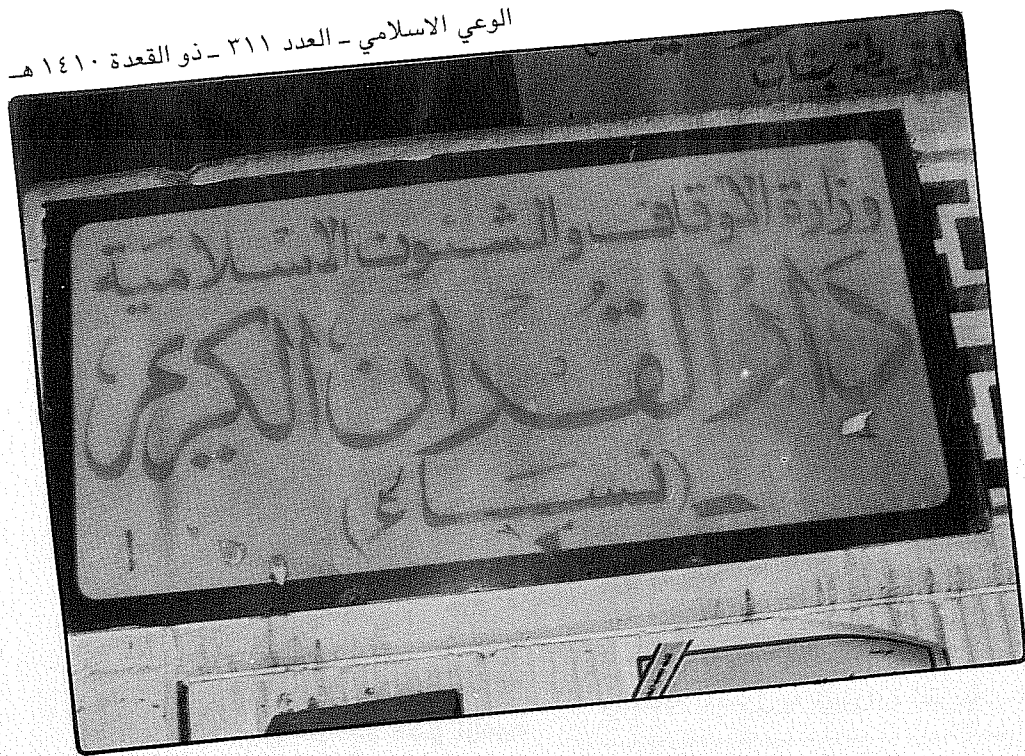 الوعي الاسلامي ـ العدد ٣١١ ـ ذو القعدة ١٤١٠ هـ
بنات
وزارة الاوقاف والشئون الاسلامية
دار القرآن الكريم
(نساء)